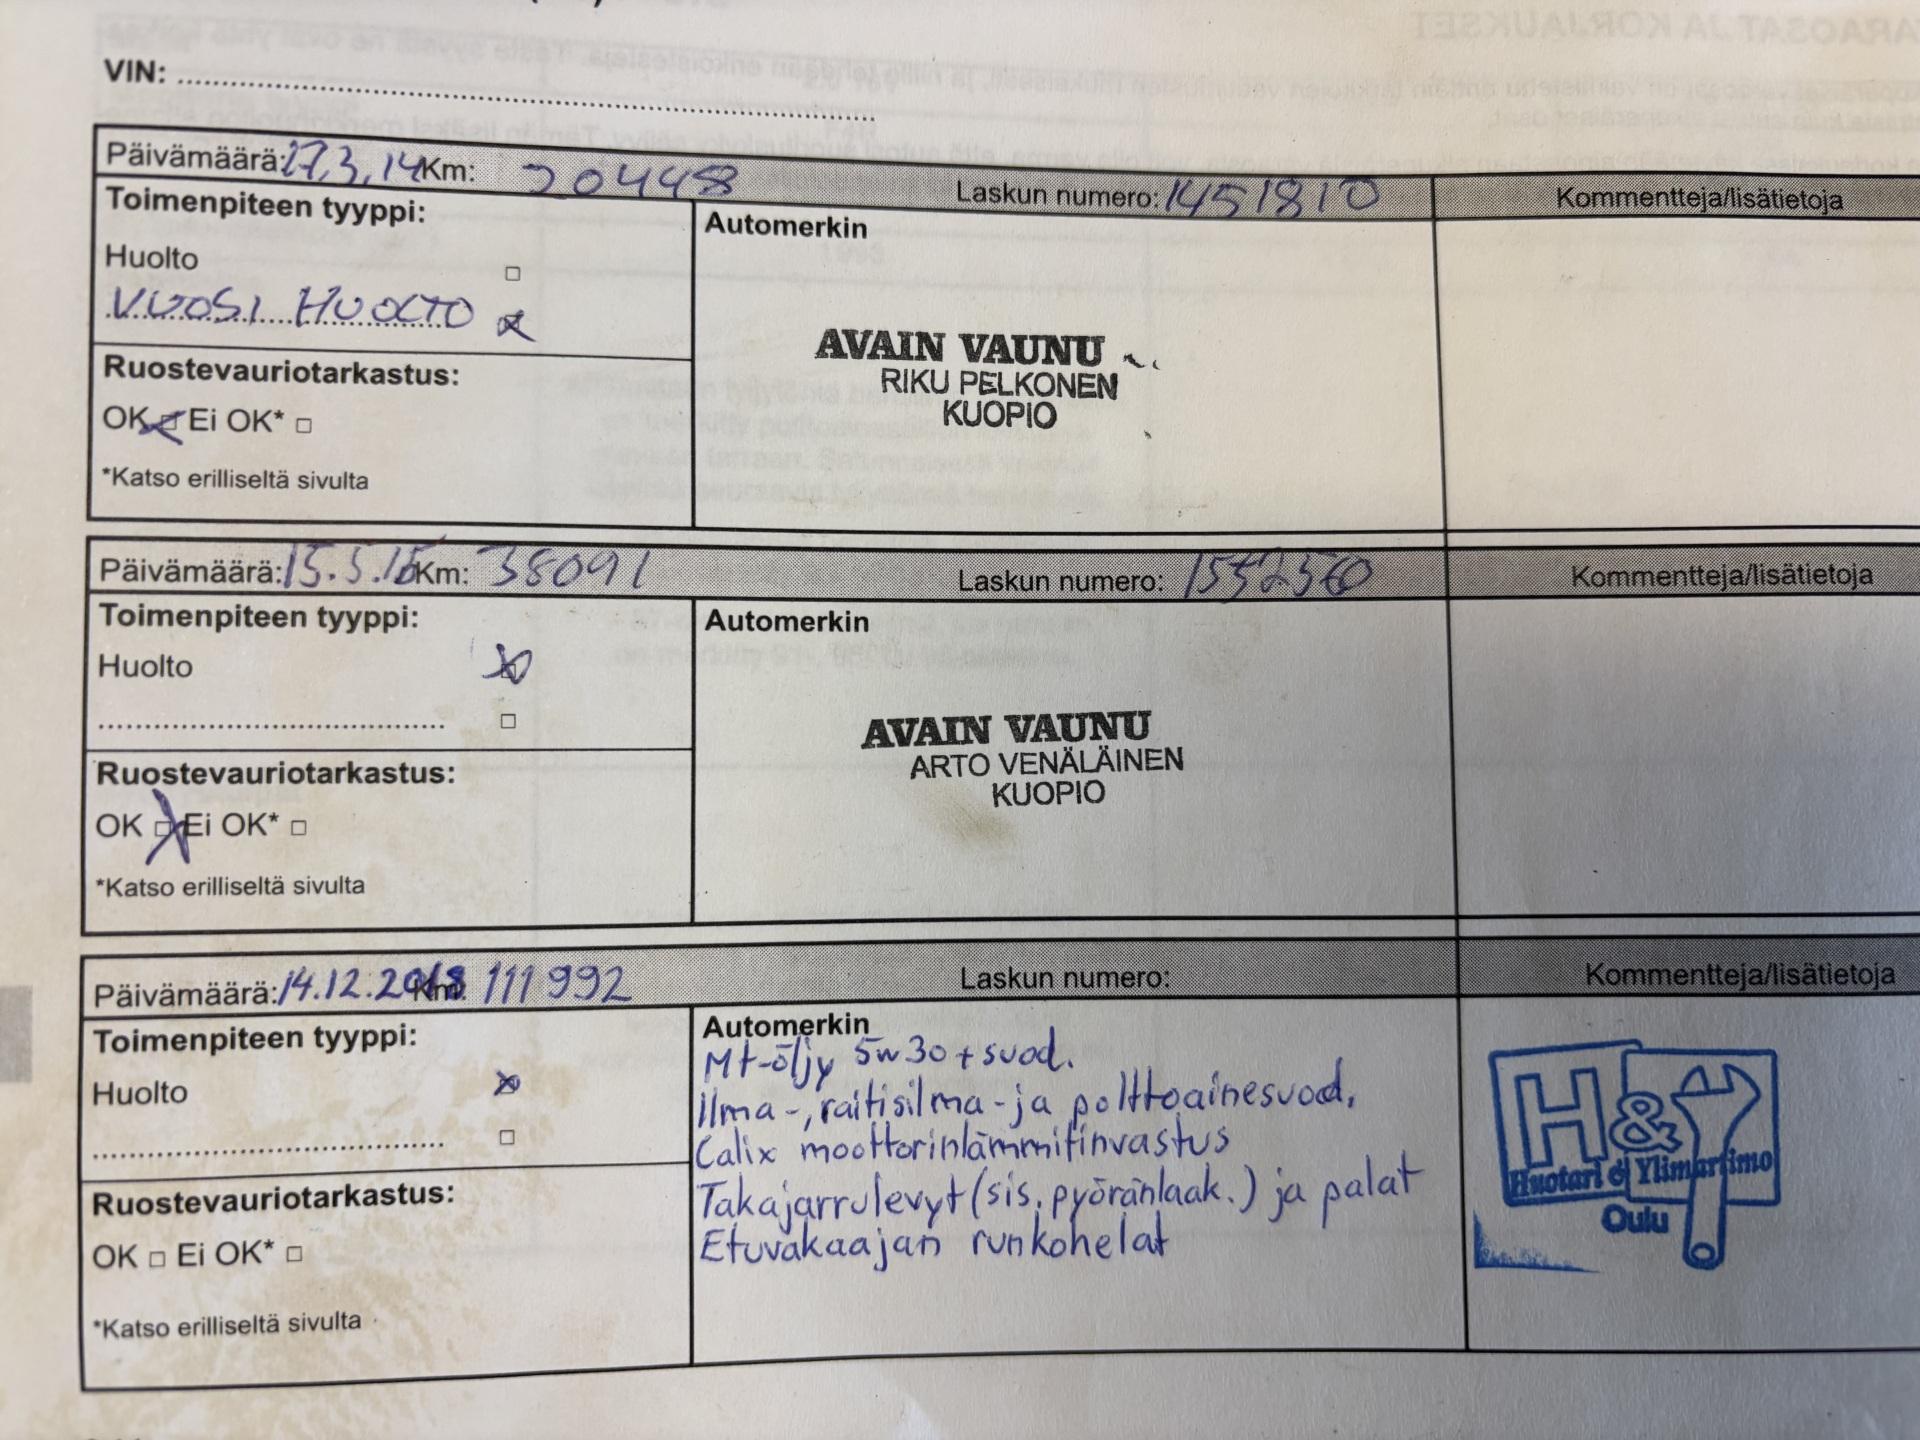 VIN:
Päivämäärä: 27.3.14 Km: 20448 Laskun numero: 1451810 Kommentteja/lisätietoja
Toimenpiteen tyyppi:
Automerkin
Huolto
VUOSI HUOLTO
AVAIN VAUNU
RIKU PELKONEN
KUOPIO
Ruostevauriotarkastus:
OK Ei OK*
*Katso erilliseltä sivulta
Päivämäärä: 15.5.15 Km: 38091 Laskun numero: Kommentteja/lisätietoja
Toimenpiteen tyyppi:
Automerkin
Huolto
AVAIN VAUNU
ARTO VENÄLÄINEN
KUOPIO
Ruostevauriotarkastus:
OK Ei OK*
*Katso erilliseltä sivulta
Päivämäärä: 14.12.2018 Km: 111992 Laskun numero: Kommentteja/lisätietoja
Toimenpiteen tyyppi:
Huolto
Ruostevauriotarkastus:
OK Ei OK*
*Katso erilliseltä sivulta
Automerkin
Mt-öljy 5w30 + suod.
Ilma-, raitisilma- ja polttoainesuod.
Calix moottorinlämmitinvastus
Takajarrulevyt (sis. pyöränlaak.) ja palat
Etuvakaajan runkohelat
H&Y
Huotari & Ylimartimo
Oulu